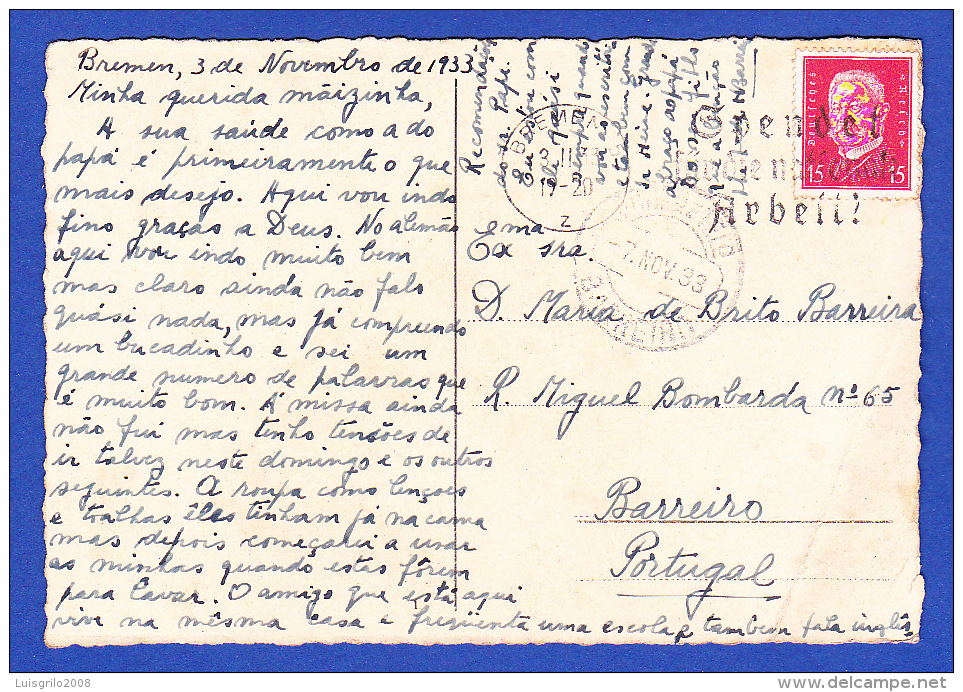 Bremen, 3 de Novembro de 1933
Minha querida mãizinha,
A sua saúde como a do
papá é primeiramente o que
mais desejo. Aqui vou indo
fino graças a Deus. No alemão
aqui vou indo muito bem
mas claro ainda não falo
quási nada, mas já compreendo
um bucadinho e sei um
grande numero de palavras que
é muito bom. Á missa ainda
não fui mas tenho tensões de
ir talvez neste domingo e os outros
seguintes. A roupa como lençoes
e toalhas êles tinham já na cama
mas depois começarei a usar
as minhas quando estas fôrem
para lavar. O amigo que está aqui
vive na mesma casa e freqüenta uma escola, e tambem fala inglês.
Recomendações
do sr. Pape.
Eu vou com
ele quasi
sempre quando
vou ao escritório
e tambem com
sr Meier. Grande
abraço ao papá
Do seu filho
BREMEN
3 11
19-20
z
Spendet
Arbeit!
DEUTSCHES REICH
15 15
7. NOV. 33
BARREIRO
Exma sra.
D. Maria de Brito Barreira
R. Miguel Bombarda nº 65
Barreiro
Portugal
Luisgrilo2008
delcampe.net